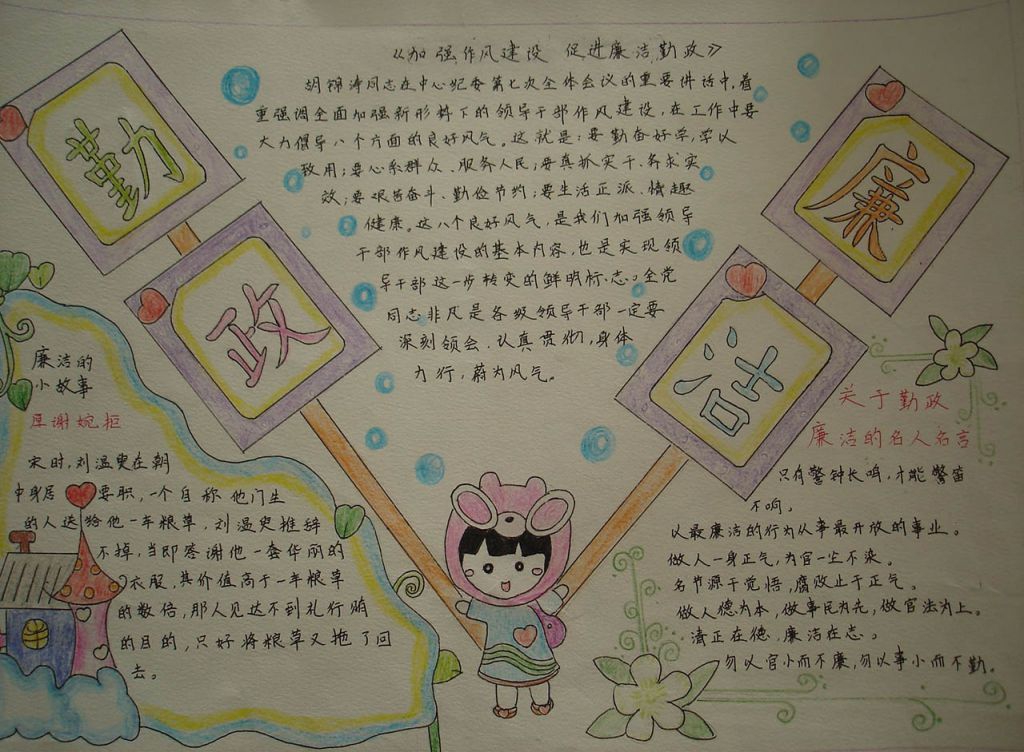 《加强作风建设 促进廉洁勤政》
胡锦涛同志在中心纪委第七次全体会议的重要讲话中,着
重强调全面加强新形势下的领导干部作风建设,在工作中要
大力倡导八个方面的良好风气。这就是:要勤奋好学,学以
致用;要心系群众、服务人民;要真抓实干、务求实
效;要艰苦奋斗、勤俭节约;要生活正派、情趣
健康。这八个良好风气,是我们加强领导
干部作风建设的基本内容,也是实现领
导干部这一步转变的鲜明标志。全党
同志非凡是各级领导干部一定要
深刻领会、认真贯彻,身体
力行,蔚为风气。
勤
政
廉
洁
廉洁的
小故事
厚谢婉拒
宋时,刘温叟在朝
中身居要职,一个自称他门生
的人送给他一车粮草,刘温叟推辞
不掉,当即答谢他一套华丽的
衣服,其价值高于一车粮草
的数倍,那人见达不到礼行贿
的目的,只好将粮草又拖了回
去。
关于勤政
廉洁的名人名言
只有警钟长鸣,才能警笛
不响。
以最廉洁的行为从事最开放的事业。
做人一身正气,为官一尘不染。
名节源于觉悟,腐败止于正气。
做人德为本,做事民为先,做官法为上。
清正在德,廉洁在志。
勿以官小而不廉,勿以事小而不勤。